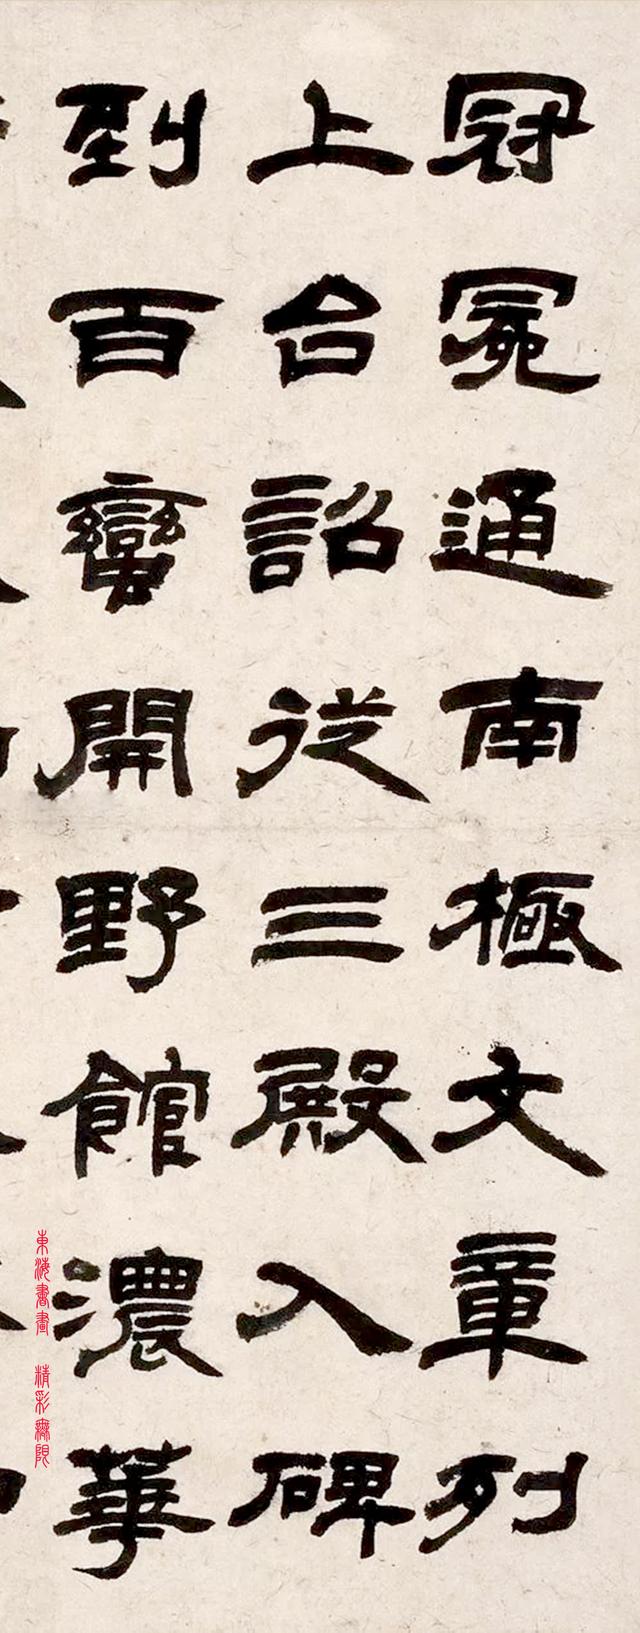 冠冕通南極文章列
上台詔從三殿入碑
到百蠻開野館濃華
東海書畫 精彩無限